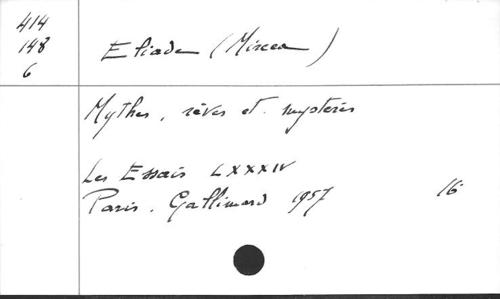 414
148
6
Eliade (Mircea)
Mythes, rêves et mystères
Les Essais LXXXIV
Paris. Gallimard 1957 16°